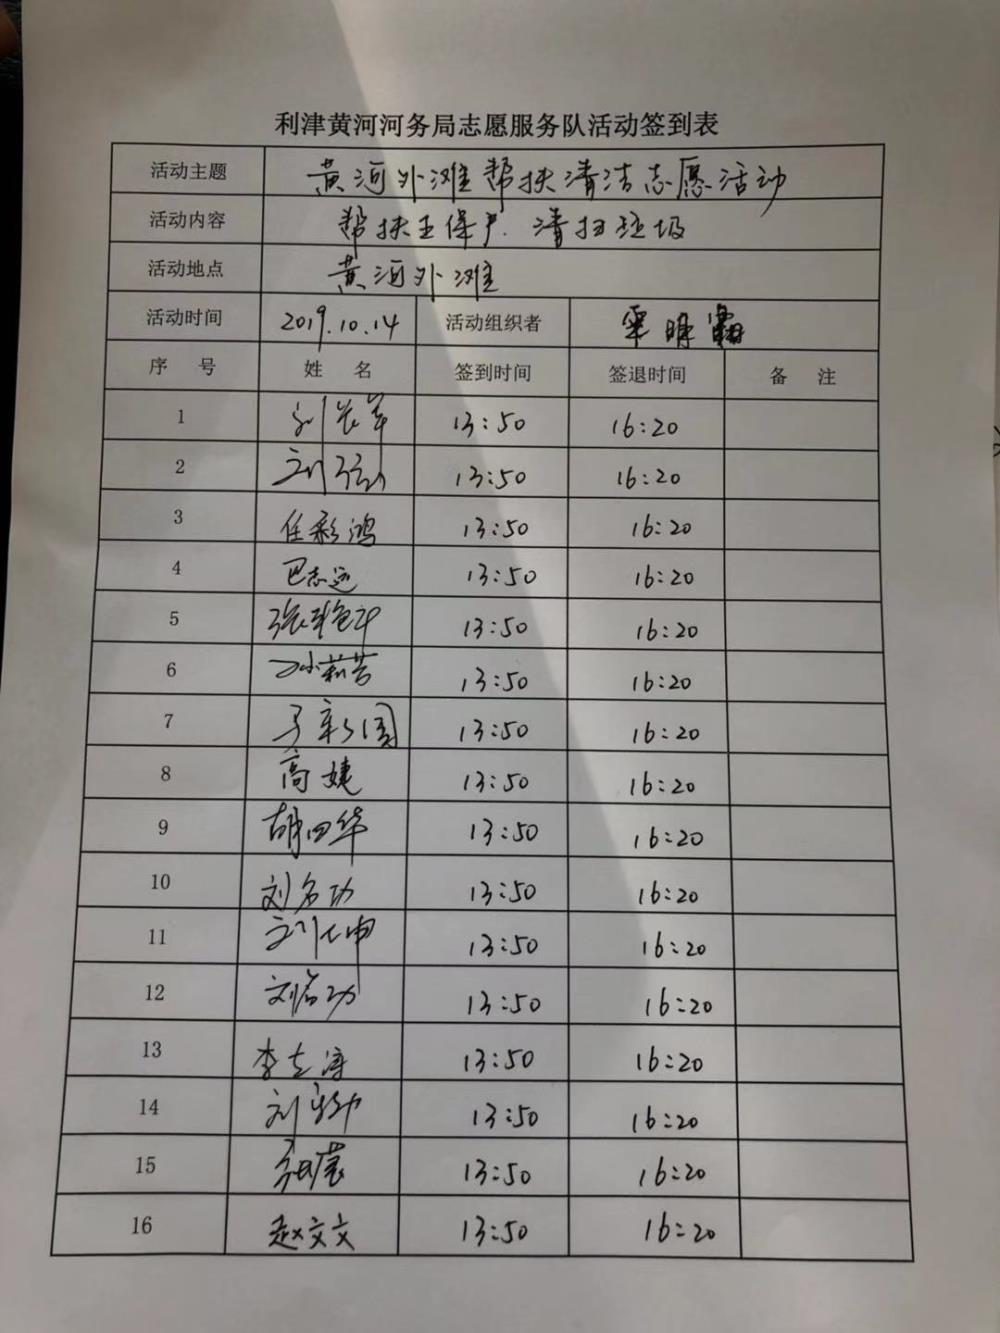 利津黄河河务局志愿服务队活动签到表
活动主题 黄河外滩帮扶清洁志愿活动
活动内容 帮扶五保户.清扫垃圾
活动地点 黄河外滩
活动时间 2019.10.14 活动组织者
序 号 姓 名 签到时间 签退时间 备 注
1 13:50 16:20
2 13:50 16:20
3 任彩鸿 13:50 16:20
4 巴志远 13:50 16:20
5 13:50 16:20
6 13:50 16:20
7 13:50 16:20
8 高婕 13:50 16:20
9 胡四华 13:50 16:20
10 刘名功 13:50 16:20
11 13:50 16:20
12 13:50 16:20
13 13:50 16:20
14 13:50 16:20
15 13:50 16:20
16 赵文文 13:50 16:20